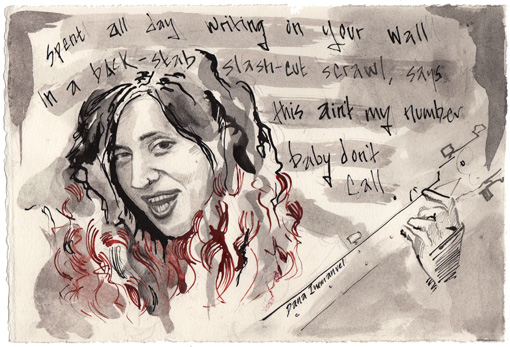 spent all day writing on your wall
in a back-stab slash-cut scrawl, says
this aint my number
baby don't
call.
Dana Immanuel